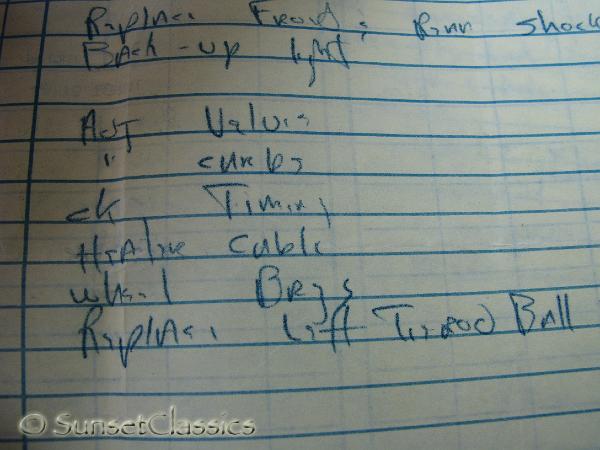 Replace Front & Rear Shock
Back-up light
Adj Valves
" carbs
ck Timing
cable
wheel Brgs
Replace left Tierod Ball
© SunsetClassics